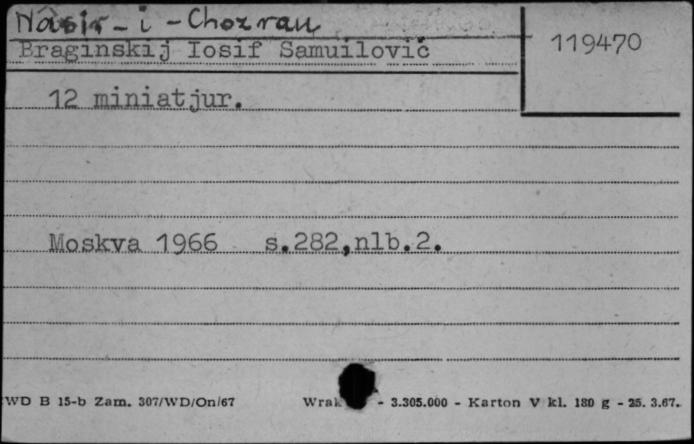 Nasir-i-Chozrau
Braginskij Iosif Samuilovič
119470
12 miniatjur.
Moskva 1966 s.282,nlb.2.
WD B 15-b Zam. 307/WD/On/67 - 3.305.000 - Karton V kl. 180 g - 25. 3.67.